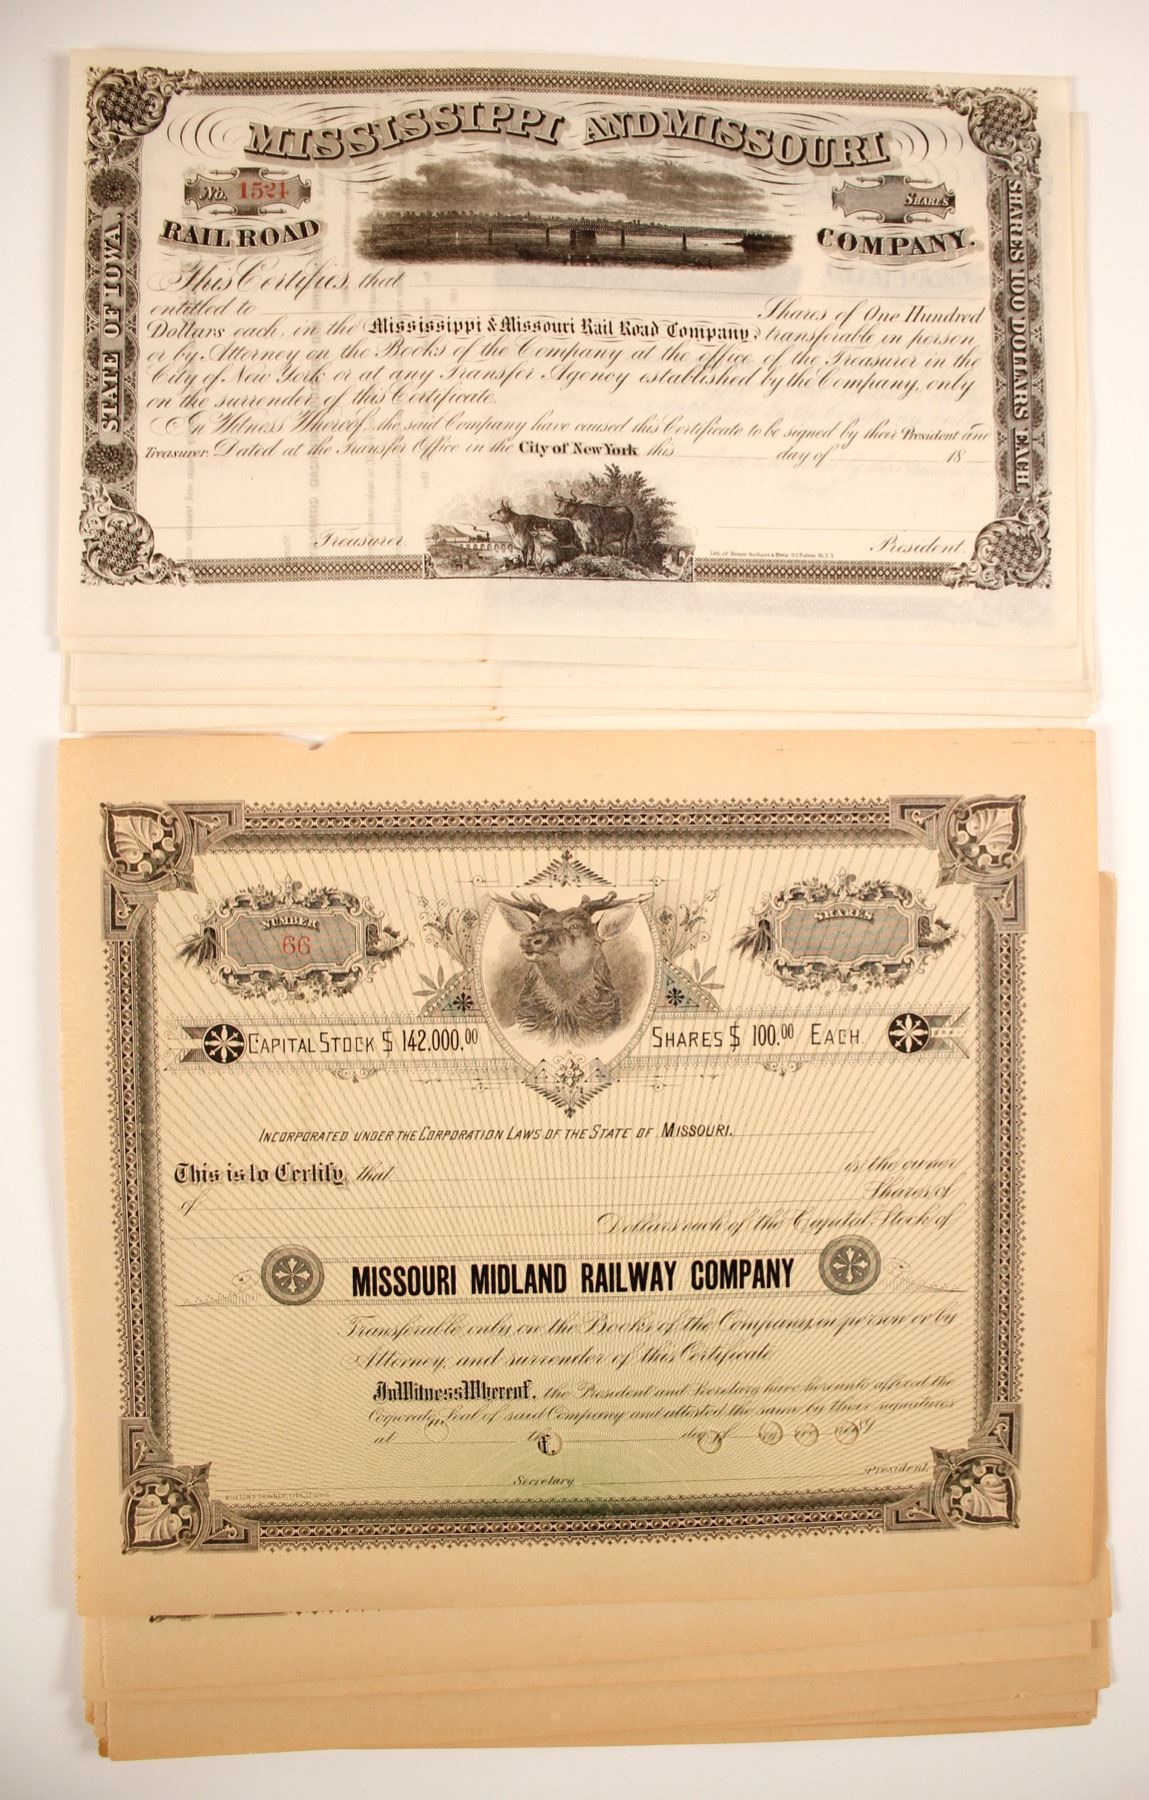 MISSISSIPPI AND MISSOURI
No. 1521
SHARES
RAIL ROAD
COMPANY.
STATE OF IOWA.
SHARES 100 DOLLARS EACH.
This Certifies, that
entitled to Shares of One Hundred
Dollars each, in the Mississippi & Missouri Rail Road Company, transferable in person
or by Attorney on the Books of the Company at the office of the Treasurer in the
City of New York or at any Transfer Agency established by the Company, only
on the surrender of this Certificate.
In Witness Whereof, the said Company have caused this Certificate to be signed by their President and
Treasurer. Dated at the Transfer Office in the City of New York this day of 18
Treasurer.
President.
NUMBER
66
SHARES
CAPITAL STOCK $ 142,000,00
SHARES $ 100.00 EACH.
INCORPORATED UNDER THE CORPORATION LAWS OF THE STATE OF MISSOURI.
This is to Certify, that is the owner
of Shares of
Dollars each of the Capital Stock of
MISSOURI MIDLAND RAILWAY COMPANY
Transferable only on the Books of the Company, in person or by
Attorney, and surrender of this Certificate
In Witness Whereof, the President and Secretary have hereunto affixed the
Corporate Seal of said Company and attested the same by their signatures
at
Secretary
President